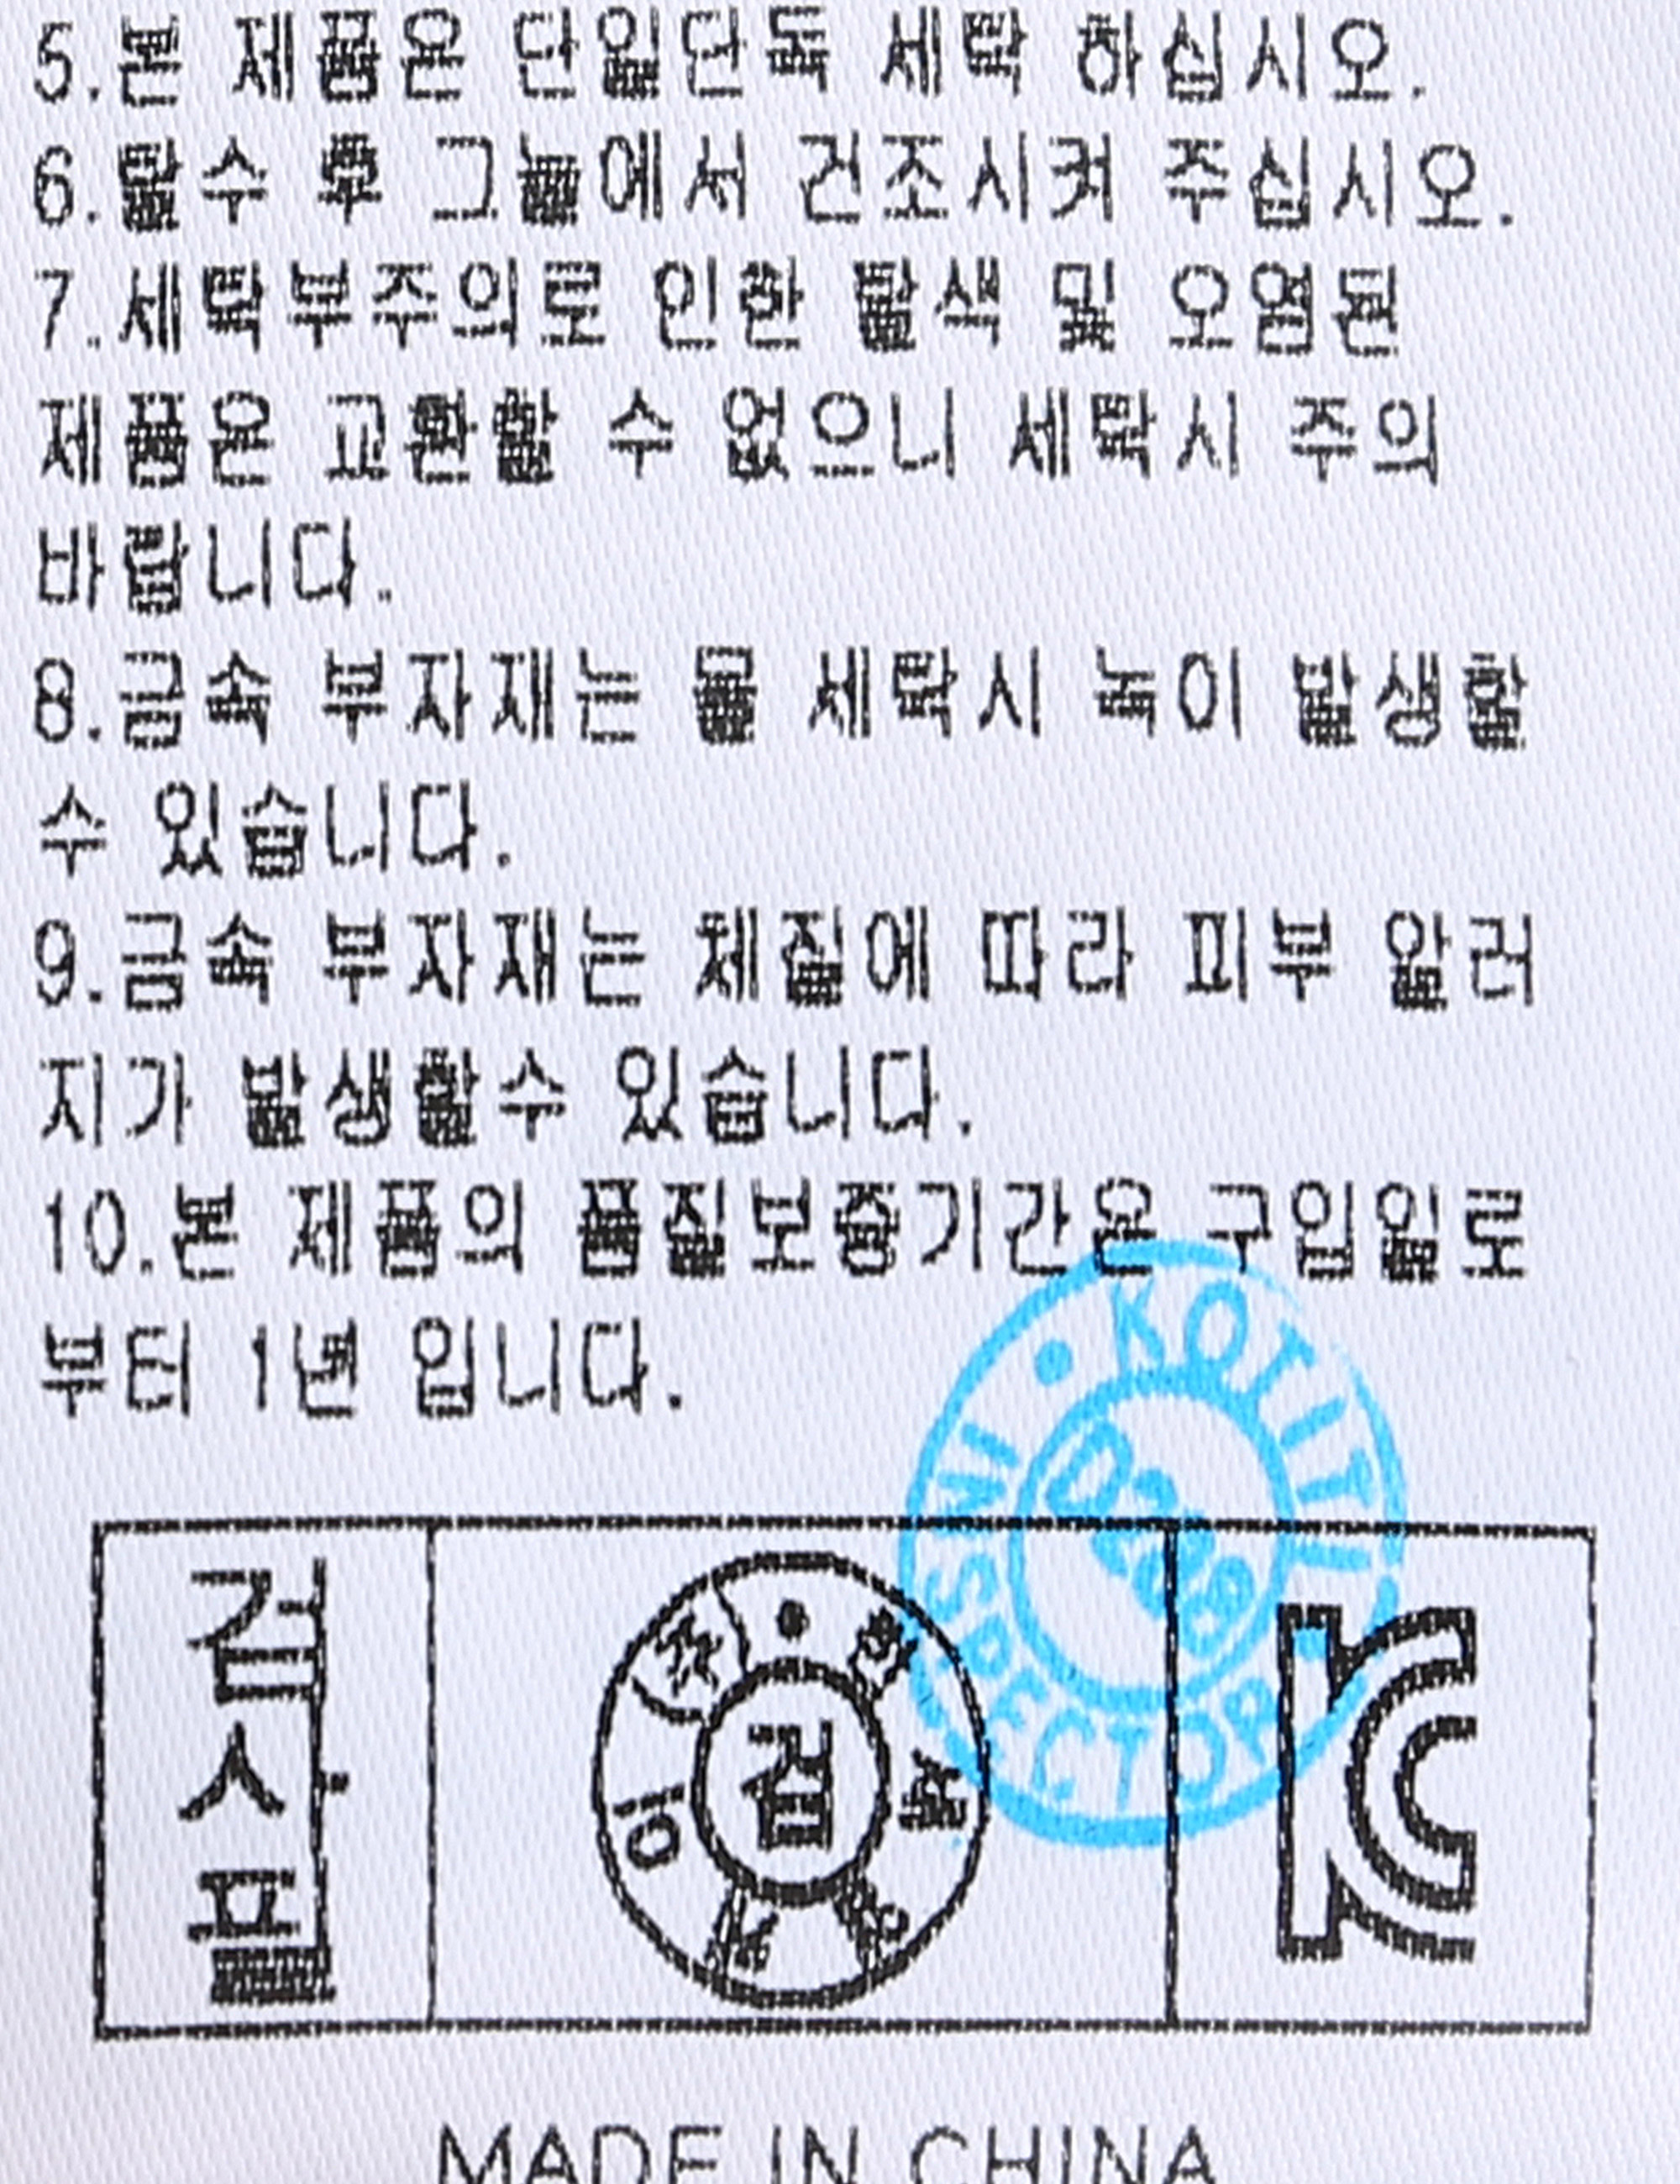 5.본 제품은 단일단독 세탁 하십시오.
6.탈수 후 그늘에서 건조시켜 주십시오.
7.세탁부주의로 인한 탈색 및 오염된
제품은 교환할 수 없으니 세탁시 주의
바랍니다.
8.금속 부자재는 물 세탁시 녹이 발생할
수 있습니다.
9.금속 부자재는 체질에 따라 피부 알러
지가 발생할수 있습니다.
10.본 제품의 품질보증기간은 구입일로
부터 1년 입니다.
KOTITI
INSPECTOR
D288
검사필
검
KC
MADE IN CHINA